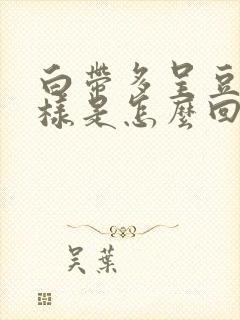 白带多呈豆
樣是怎麽回
吴葉